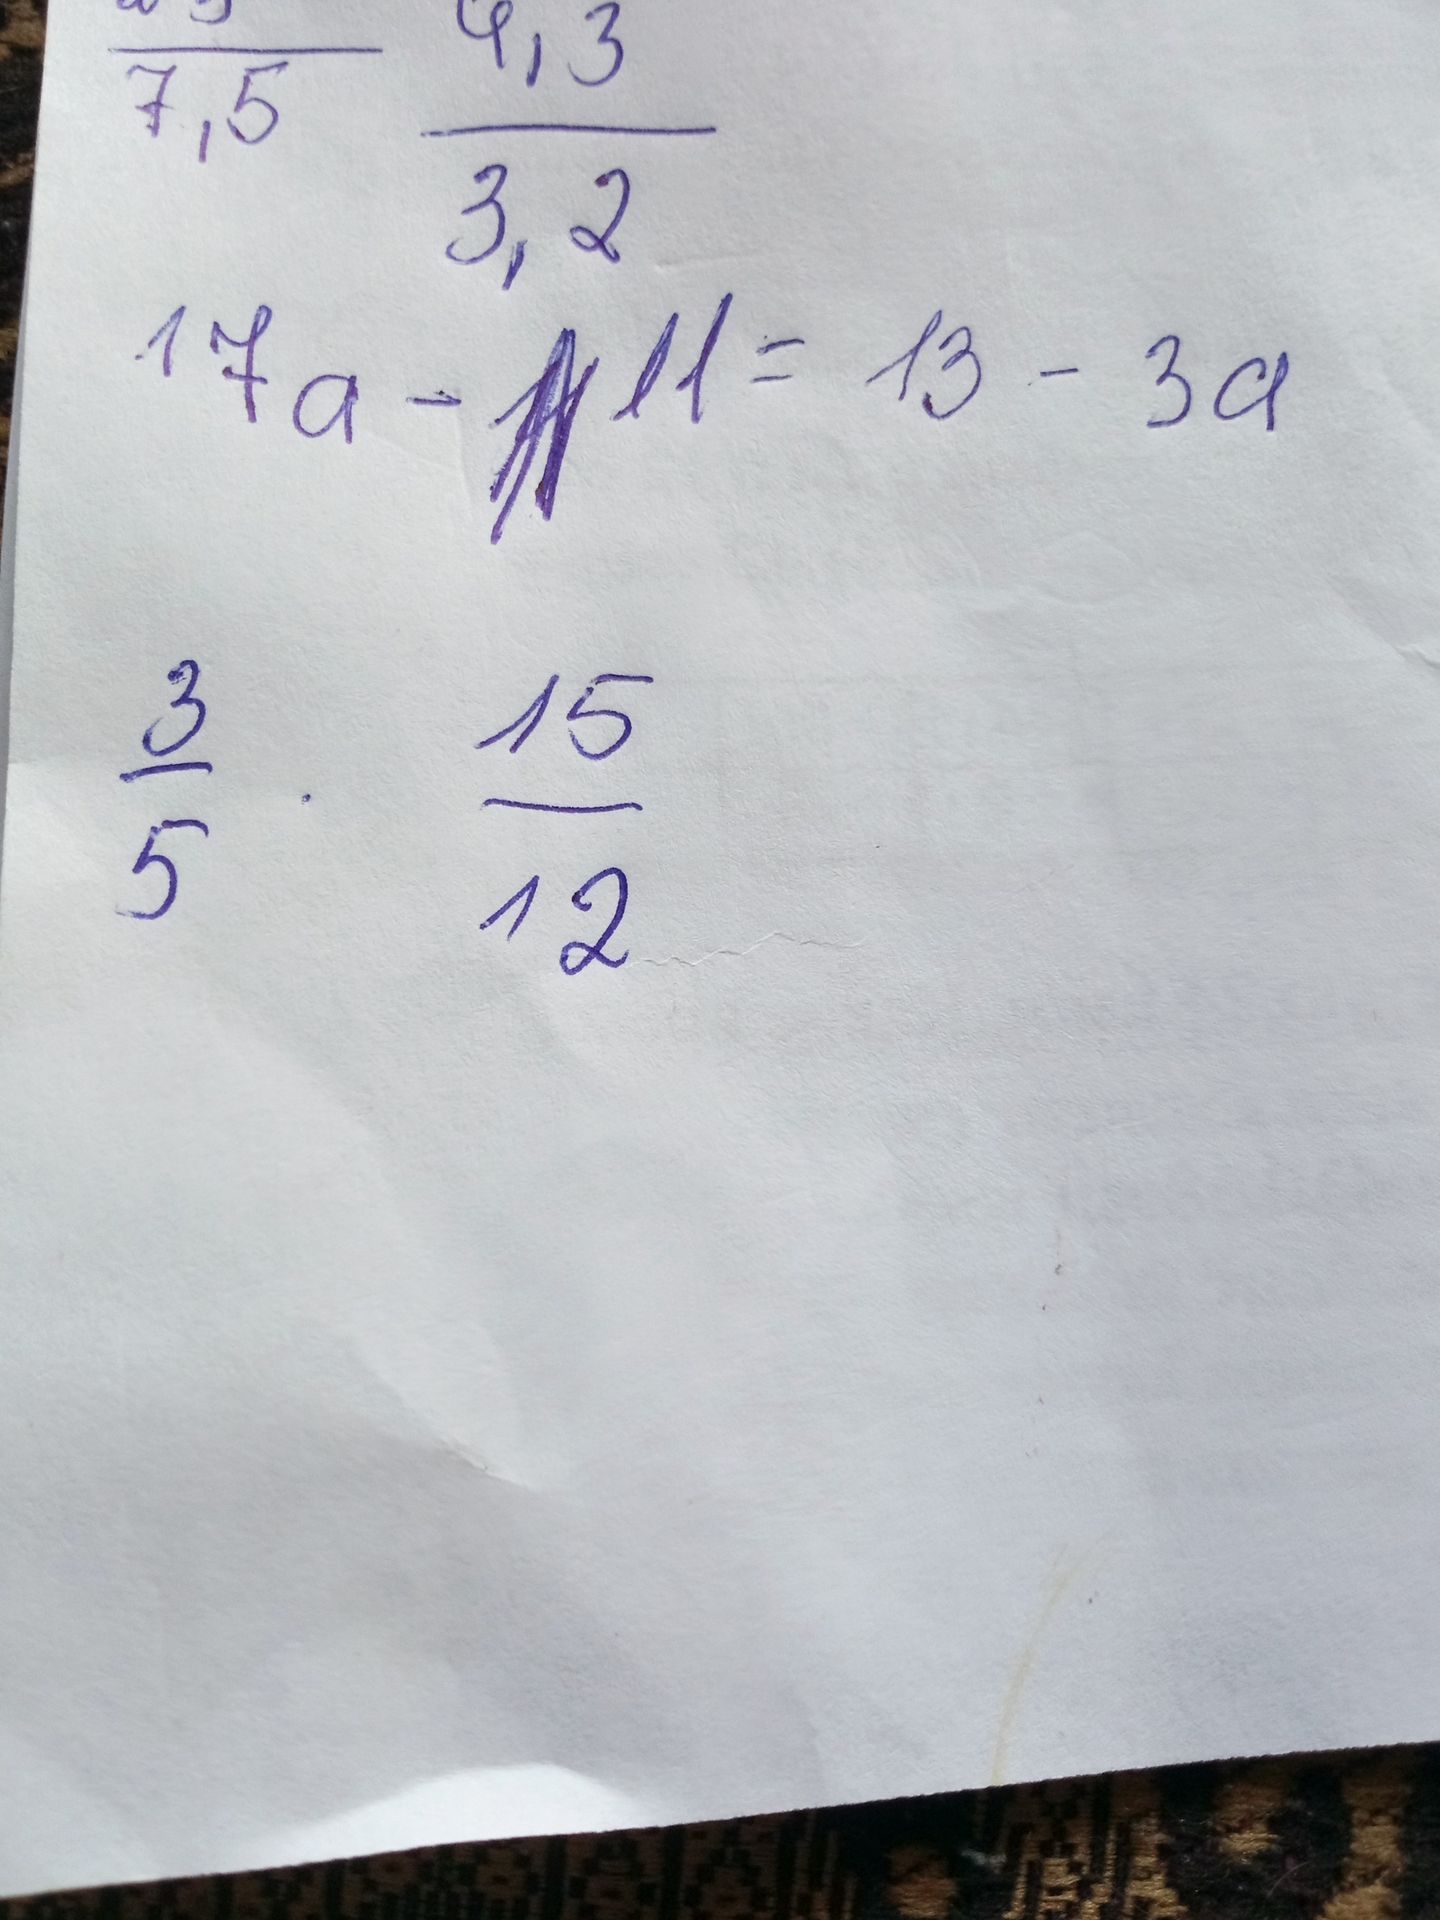 7,5
4,3
3,2
17a - 11 = 13 - 3a
3/5 · 15/12